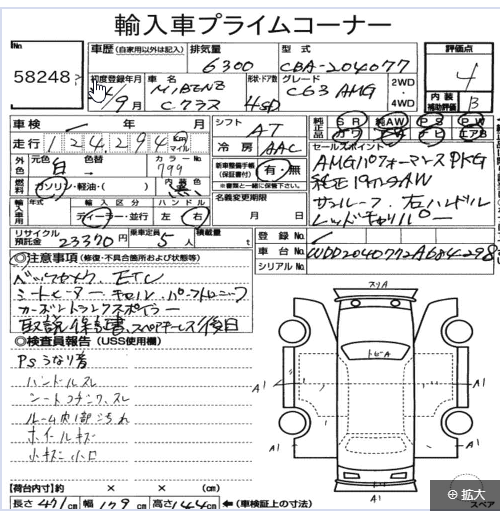 輸入車プライムコーナー
No.
58248
車歴 (自家用以外は記入) 排気量 型式
6300 CBA-204077
評価点
4
初度登録年月 車名 形状・ドア数 グレード 2WD
9月 M・BENZ Cクラス 4SD C63 AMG 4WD
内装
補助評価 B
車検 年 月 シフト AT 純正品 SR 純AW PS PW
走行 124,294 Km マイル 冷房 AAC カワ TV ナビ エアB
外色 元色 白 色替 カラーNo. 799
燃料 ガソリン・軽油・( ) 内装色 黒
新車整備手帳 (保証書付) 有・無
※書類と一緒に保管下さい。
セールスポイント
AMGパフォーマンスPKG
純正19インチAW
サンルーフ 左ハンドル
レッドキャリパー
輸入車用 年式 輸入区分 ハンドル
ディーラー・並行 左 右
名義変更期限
月 日
リサイクル預託金 23370円 乗車定員 5人 積載量 t
登録No.
車台No. WDD2040772A684298
シリアルNo.
◎注意事項 (修復・不具合箇所および状態等)
ETC
シートヒーター
カーボントランクスポイラー
取説 保証書、スペアキーレス後日
◎検査員報告 (USS使用欄)
PSうなり音
ハンドルスレ
シートコゲ、穴、スレ
ルーム内1部汚れ
ホイールキズ
小キズ小凹
スリA
トビA
A1
A1
A1
A1
A1
A1
A1
【荷台内寸】約 × × (cm)
長さ 471cm 幅 179cm 高さ 144cm ←(車検証上の寸法)
スペア
拡大